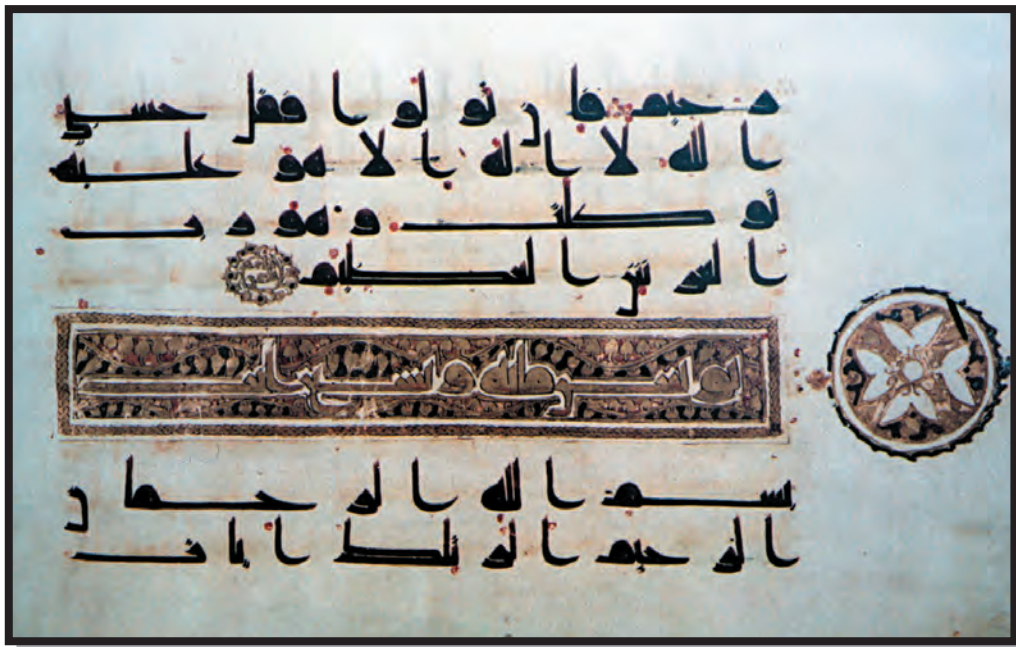 رحيم فإن تولوا فقل حسبي
الله لا إله إلا هو عليه
توكلت وهو رب
العرش العظيم
بسم الله الرحمن
الرحيم الر تلك ايات